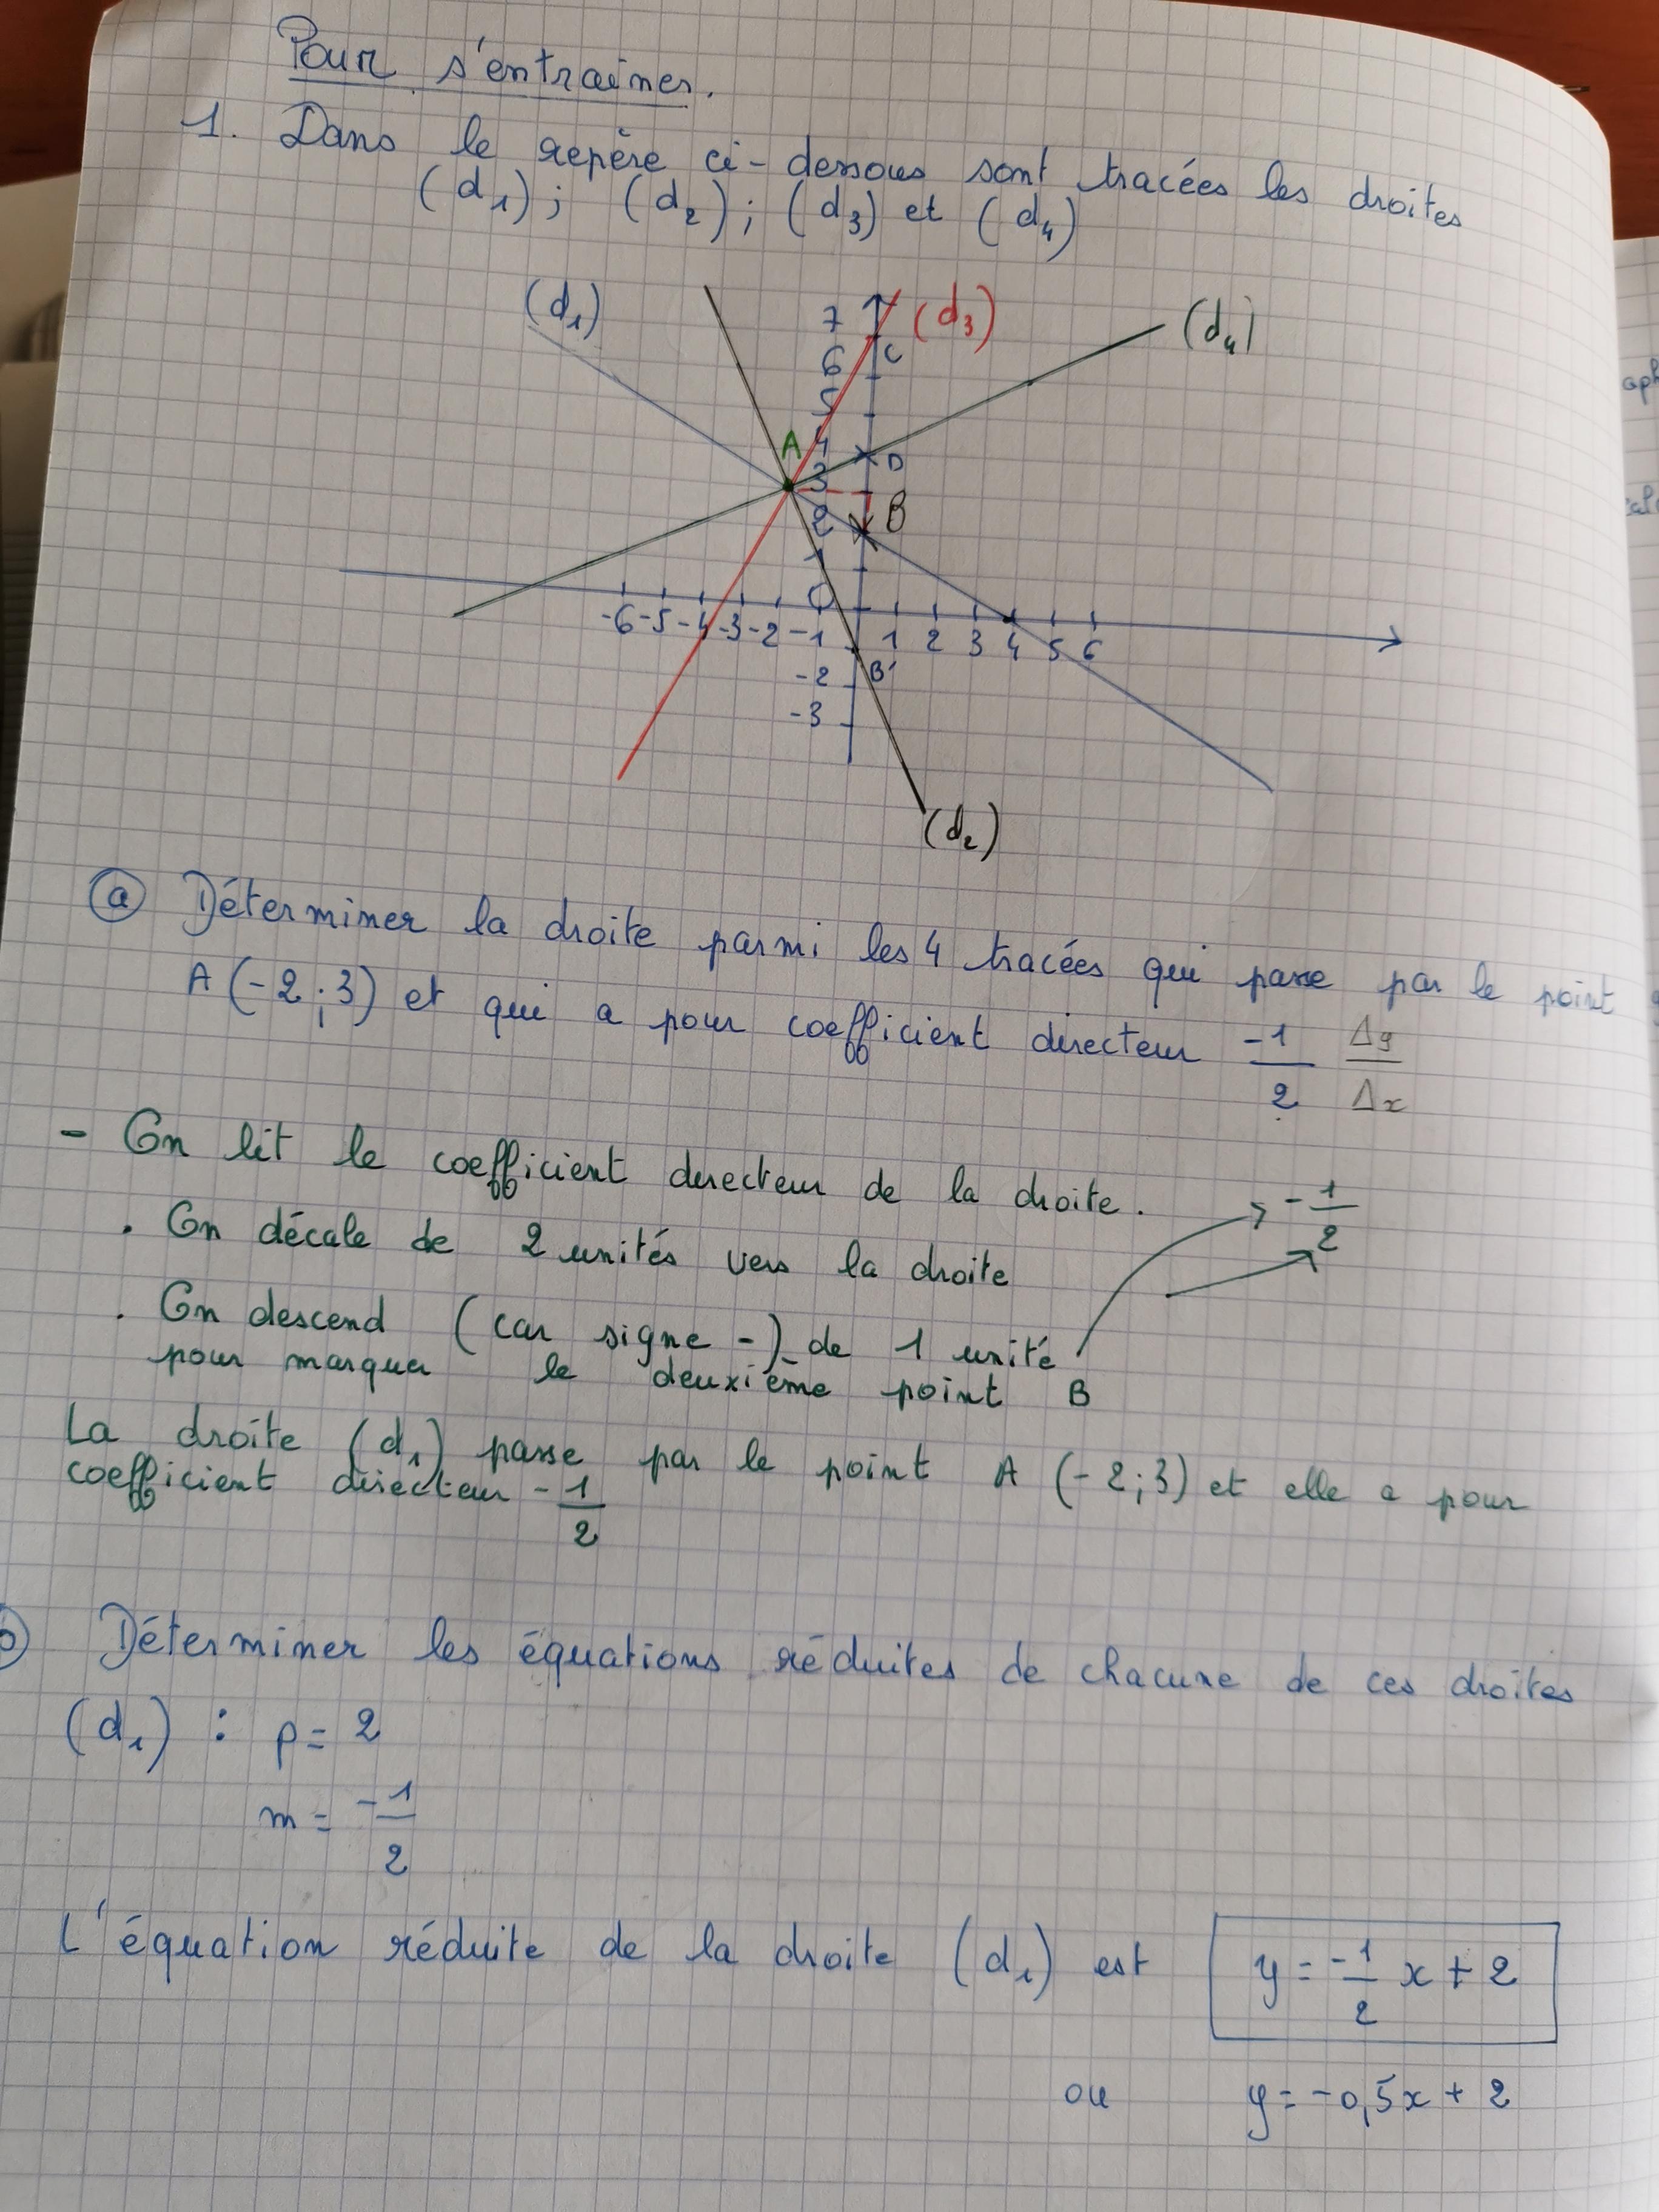 Pour s'entraîner.
1. Dans le repère ci-dessous sont tracées les droites
(d₁) ; (d₂) ; (d₃) et (d₄)
(d₁)
(d₃)
(d₄)
7
6
5
4
3
2
1
0
C
A
D
B
-6 -5 -4 -3 -2 -1 1 2 3 4 5 6
B'
-2
-3
(d₂)
ⓐ Déterminer la droite parmi les 4 tracées qui passe par le point
A (-2 ; 3) et qui a pour coefficient directeur -1/2 Δy/Δx
- On lit le coefficient directeur de la droite.
. On décale de 2 unités vers la droite
-1/2
. On descend (car signe -) de 1 unité
pour marquer le deuxième point B
La droite (d₁) passe par le point A (-2 ; 3) et elle a pour
coefficient directeur -1/2
Déterminer les équations réduites de chacune de ces droites
(d₁) : p = 2
m = -1/2
L'équation réduite de la droite (d₁) est y = -1/2 x + 2
ou y = -0,5x + 2